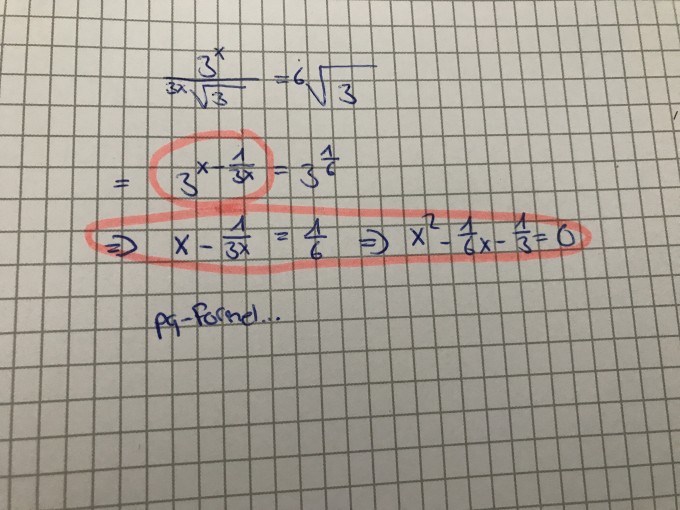 3^x / ³ˣ√3 = ⁶√3
= 3^(x - 1/3x) = 3^(1/6)
=> x - 1/3x = 1/6 => x² - 1/6 x - 1/3 = 0
pq-Formel...